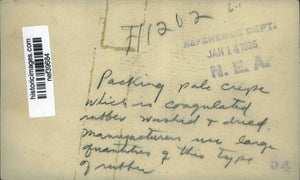 F/1202
REFERENCE DEPT.
JAN 14 1926
N. E. A.
historicimages.com
nef39684
Packing pale crepe
which is coagulated
rubber washed & dried.
Manufacturers use large
quantities of this type
of rubber